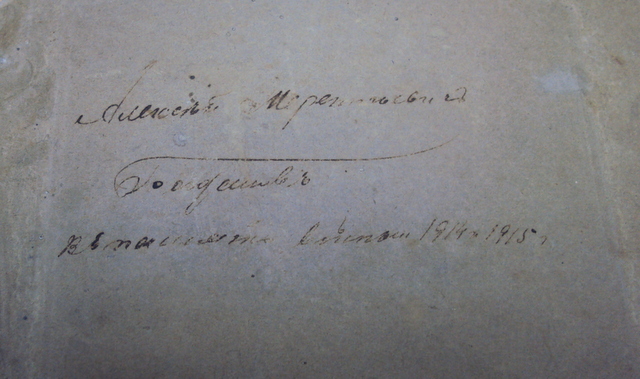 Алексѣй Терентьевичъ
Въ память войны 1914 - 1915 г